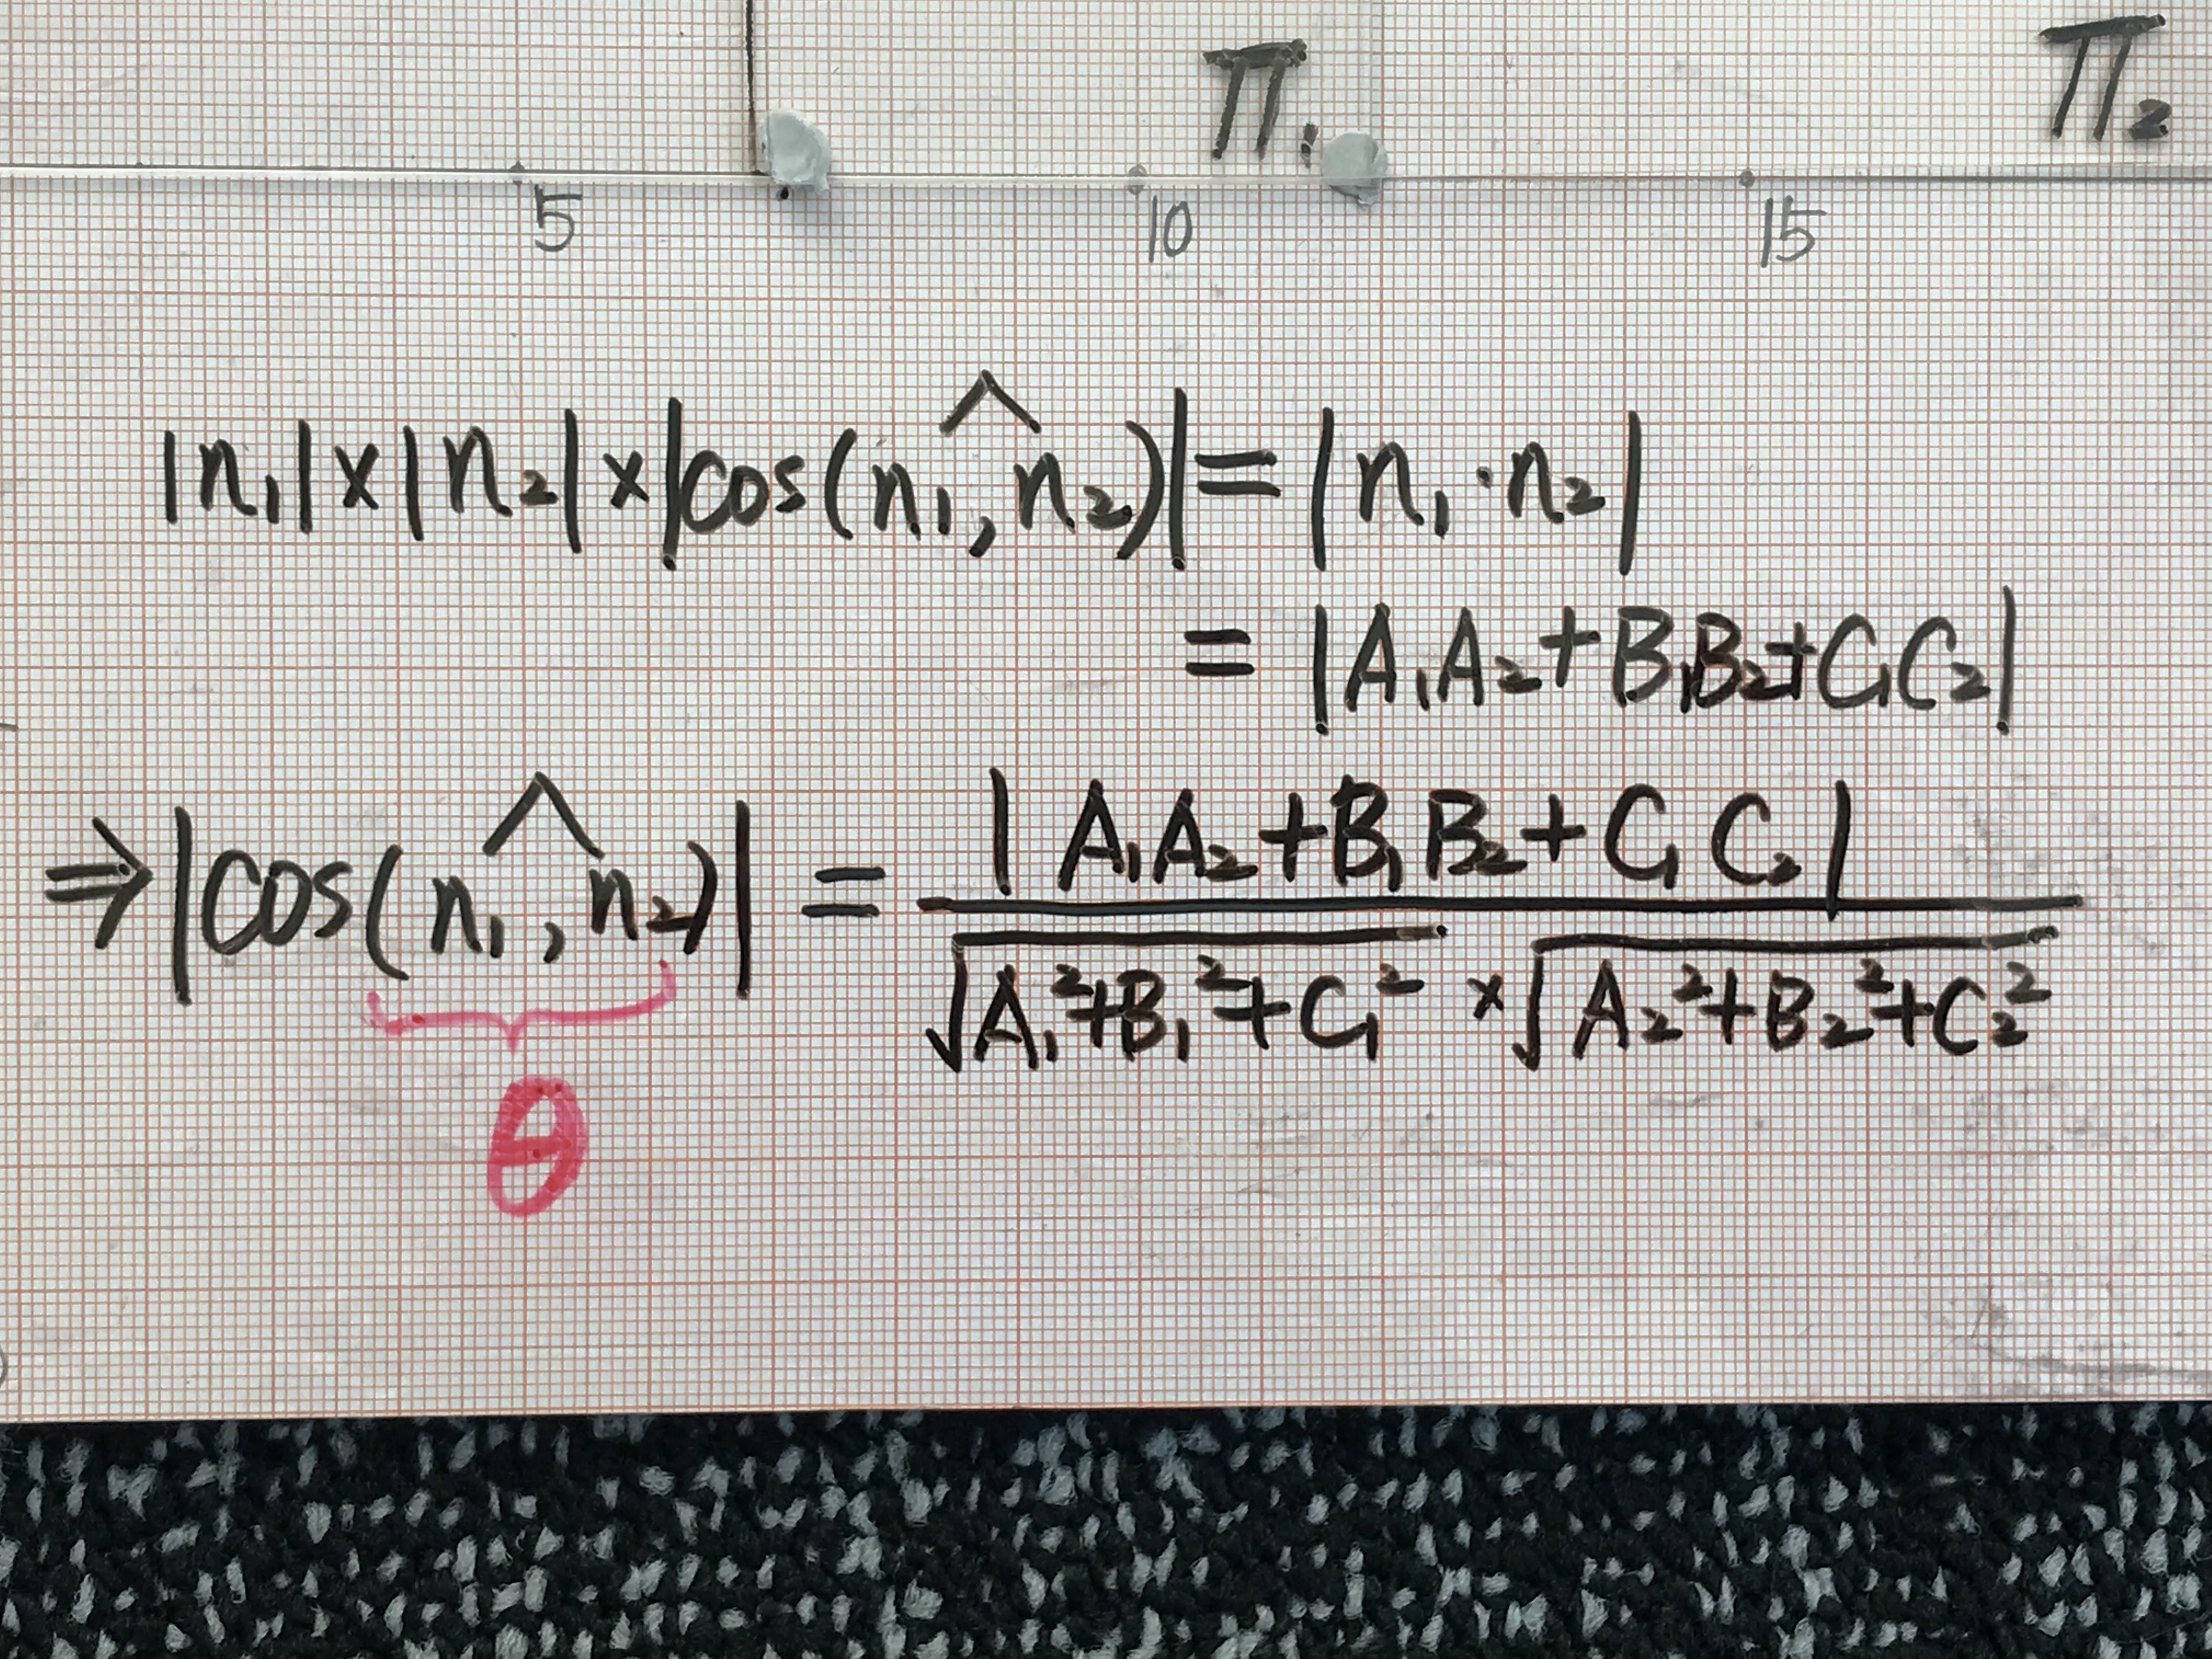 Π₁ Π₂
5 10 15
|n₁|×|n₂|×|cos(n₁^,n₂)|=|n₁·n₂|
= |A₁A₂+B₁B₂+C₁C₂|
⇒|cos(n₁^,n₂)| = |A₁A₂+B₁B₂+C₁C₂| / √(A₁²+B₁²+C₁²) × √(A₂²+B₂²+C₂²)
θ